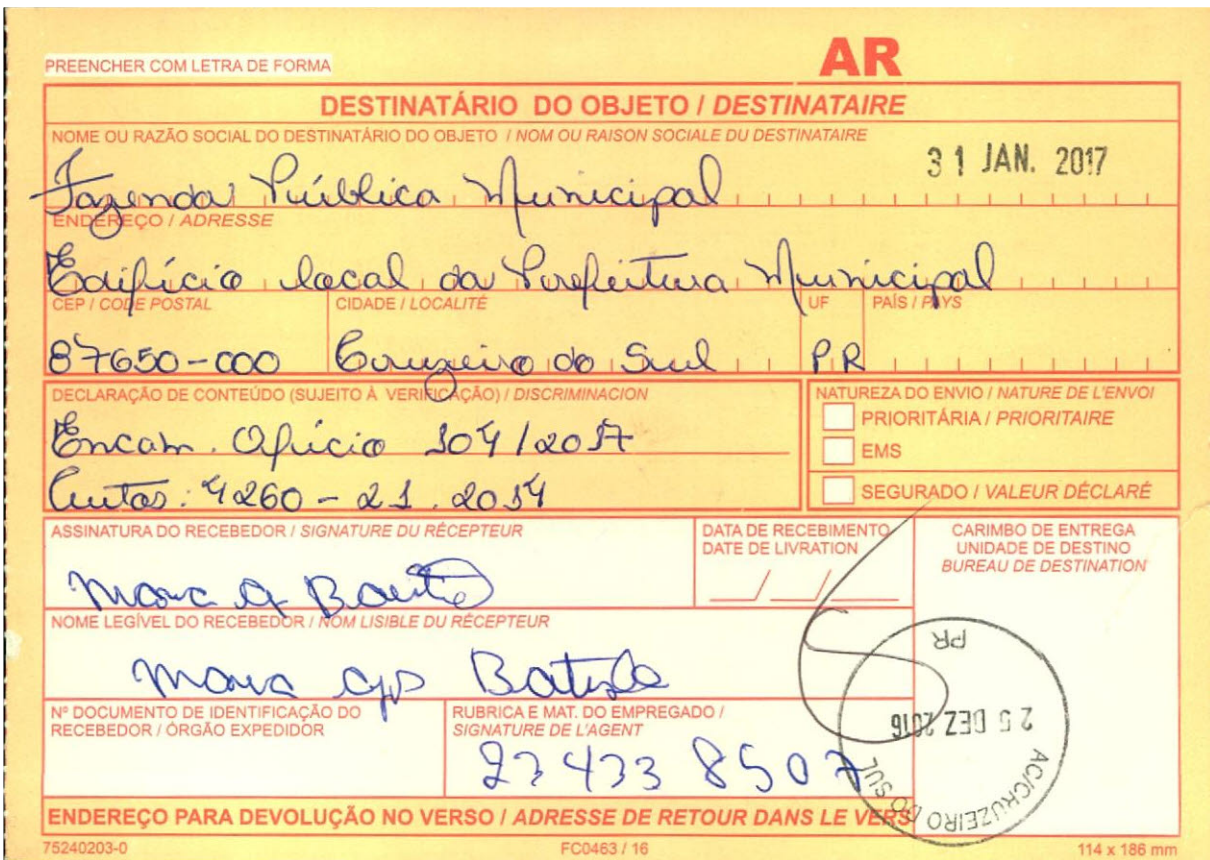 PREENCHER COM LETRA DE FORMA
AR
DESTINATÁRIO DO OBJETO / DESTINATAIRE
NOME OU RAZÃO SOCIAL DO DESTINATÁRIO DO OBJETO / NOM OU RAISON SOCIALE DU DESTINATAIRE
31 JAN. 2017
Fazenda Pública Municipal
ENDEREÇO / ADRESSE
Edifício local da Prefeitura Municipal
CEP / CODE POSTAL CIDADE / LOCALITÉ UF PAÍS / PAYS
87650-000 Cruzeiro do Sul PR
DECLARAÇÃO DE CONTEÚDO (SUJEITO À VERIFICAÇÃO) / DISCRIMINACION
Encam. Ofício 104/2017
Autos: 4260-21.2014
NATUREZA DO ENVIO / NATURE DE L'ENVOI
PRIORITÁRIA / PRIORITAIRE
EMS
SEGURADO / VALEUR DÉCLARÉ
ASSINATURA DO RECEBEDOR / SIGNATURE DU RÉCEPTEUR
DATA DE RECEBIMENTO
DATE DE LIVRATION
__/__/__
CARIMBO DE ENTREGA
UNIDADE DE DESTINO
BUREAU DE DESTINATION
NOME LEGÍVEL DO RECEBEDOR / NOM LISIBLE DU RÉCEPTEUR
Batista
Nº DOCUMENTO DE IDENTIFICAÇÃO DO
RECEBEDOR / ÓRGÃO EXPEDIDOR
RUBRICA E MAT. DO EMPREGADO /
SIGNATURE DE L'AGENT
8507
PR
25 DEZ 2016
AC/CRUZEIRO DO SUL
ENDEREÇO PARA DEVOLUÇÃO NO VERSO / ADRESSE DE RETOUR DANS LE VERS
75240203-0 FC0463 / 16 114 x 186 mm